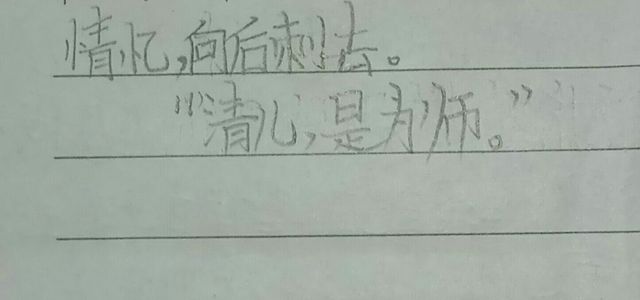 情忆,向后刺去。
“清儿,是为师。”